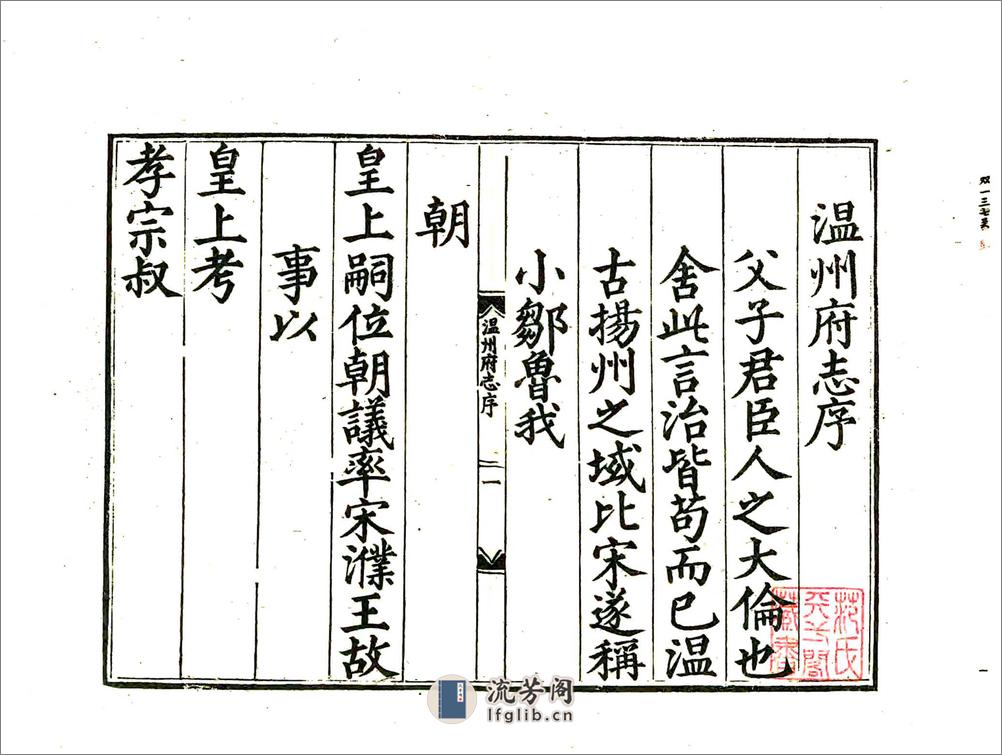 温州府志序
父子君臣人之大倫也
舍此言治皆苟而已温
古揚州之域比宋遂稱
小鄒魯我
温州府志序
一
朝
皇上嗣位朝議率宋濮王故
事以
皇上考
孝宗叔
范氏
天一閣
藏書
流芳阁
lfglib.cn